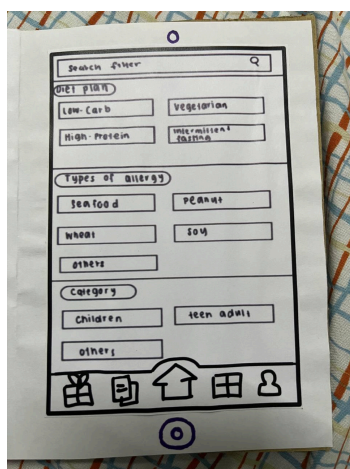 Search filter
Diet plan
Low-Carb
Vegetarian
High-Protein
Intermittent
fasting
Types of allergy
Seafood
Peanut
Wheat
Soy
others
Category
Children
teen adult
others